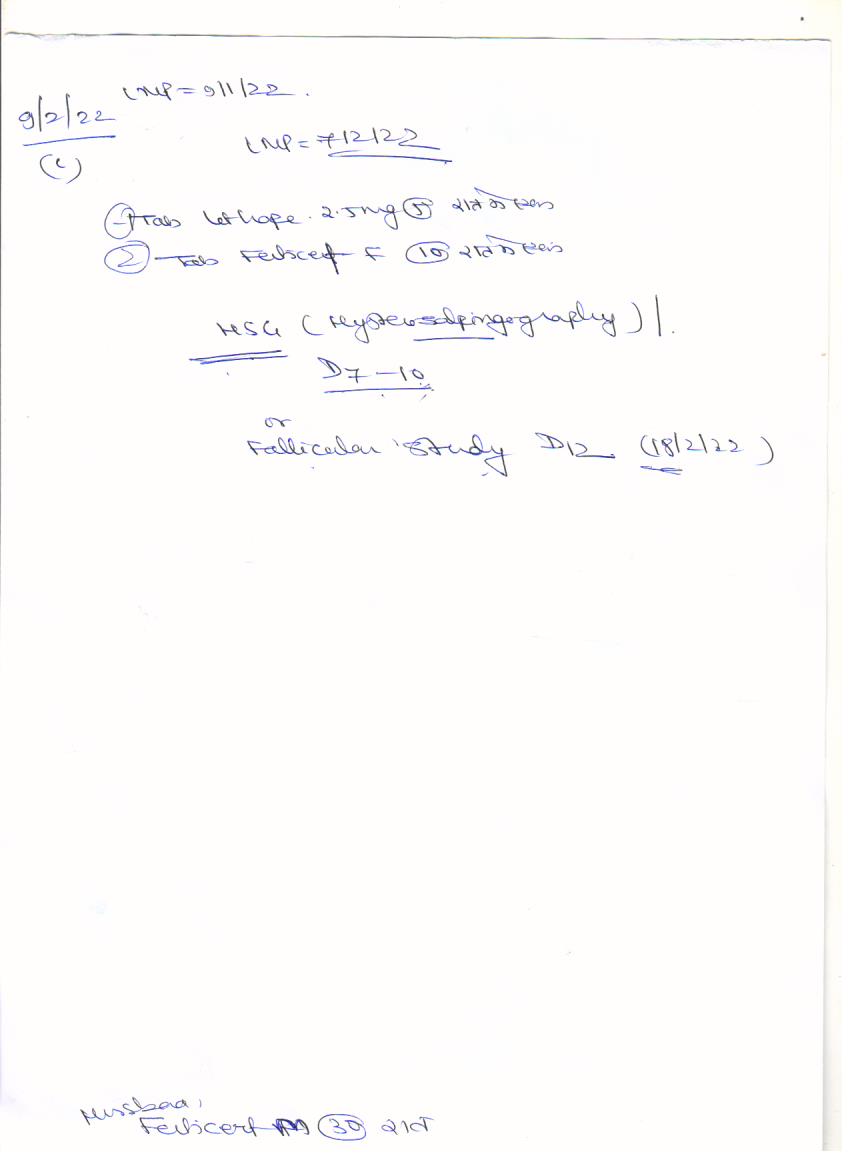 LMP = 9/1/22.
9/2/22
LMP = 7/2/22
(c)
① Tab Lethope 2.5mg ⑤ रात को एक
② Tab Feliscert F ⑩ रात को एक
HSG (Hysterosalpingography) |.
D7 – 10
or
Follicular Study D12 (18/2/22)
Husband,
Feliscert M ㉚ रात